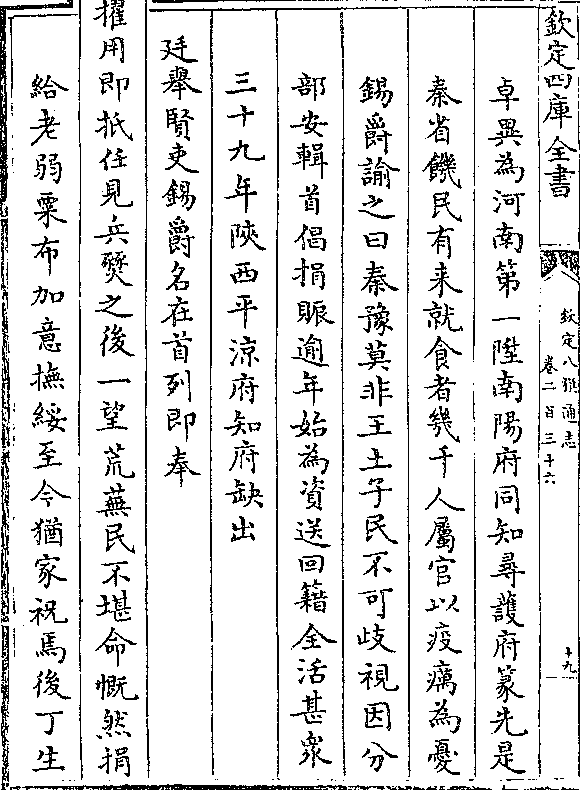 欽定四庫全書
欽定八旗通志
卷二百三十六
十九
卓異為河南第一陞南陽府同知尋護府篆先是
秦省饑民有来就食者幾千人屬官以疫癘為憂
錫爵諭之曰秦豫莫非王土子民不可歧視因分
部安輯首倡捐賑逾年始為資送回籍全活甚衆
三十九年陜西平涼府知府缺出
廷舉賢吏錫爵名在首列即奉
擢用即抵任見兵燹之後一望荒蕪民不堪命慨然捐
給老弱粟布加意撫綏至今猶家祝焉後丁生